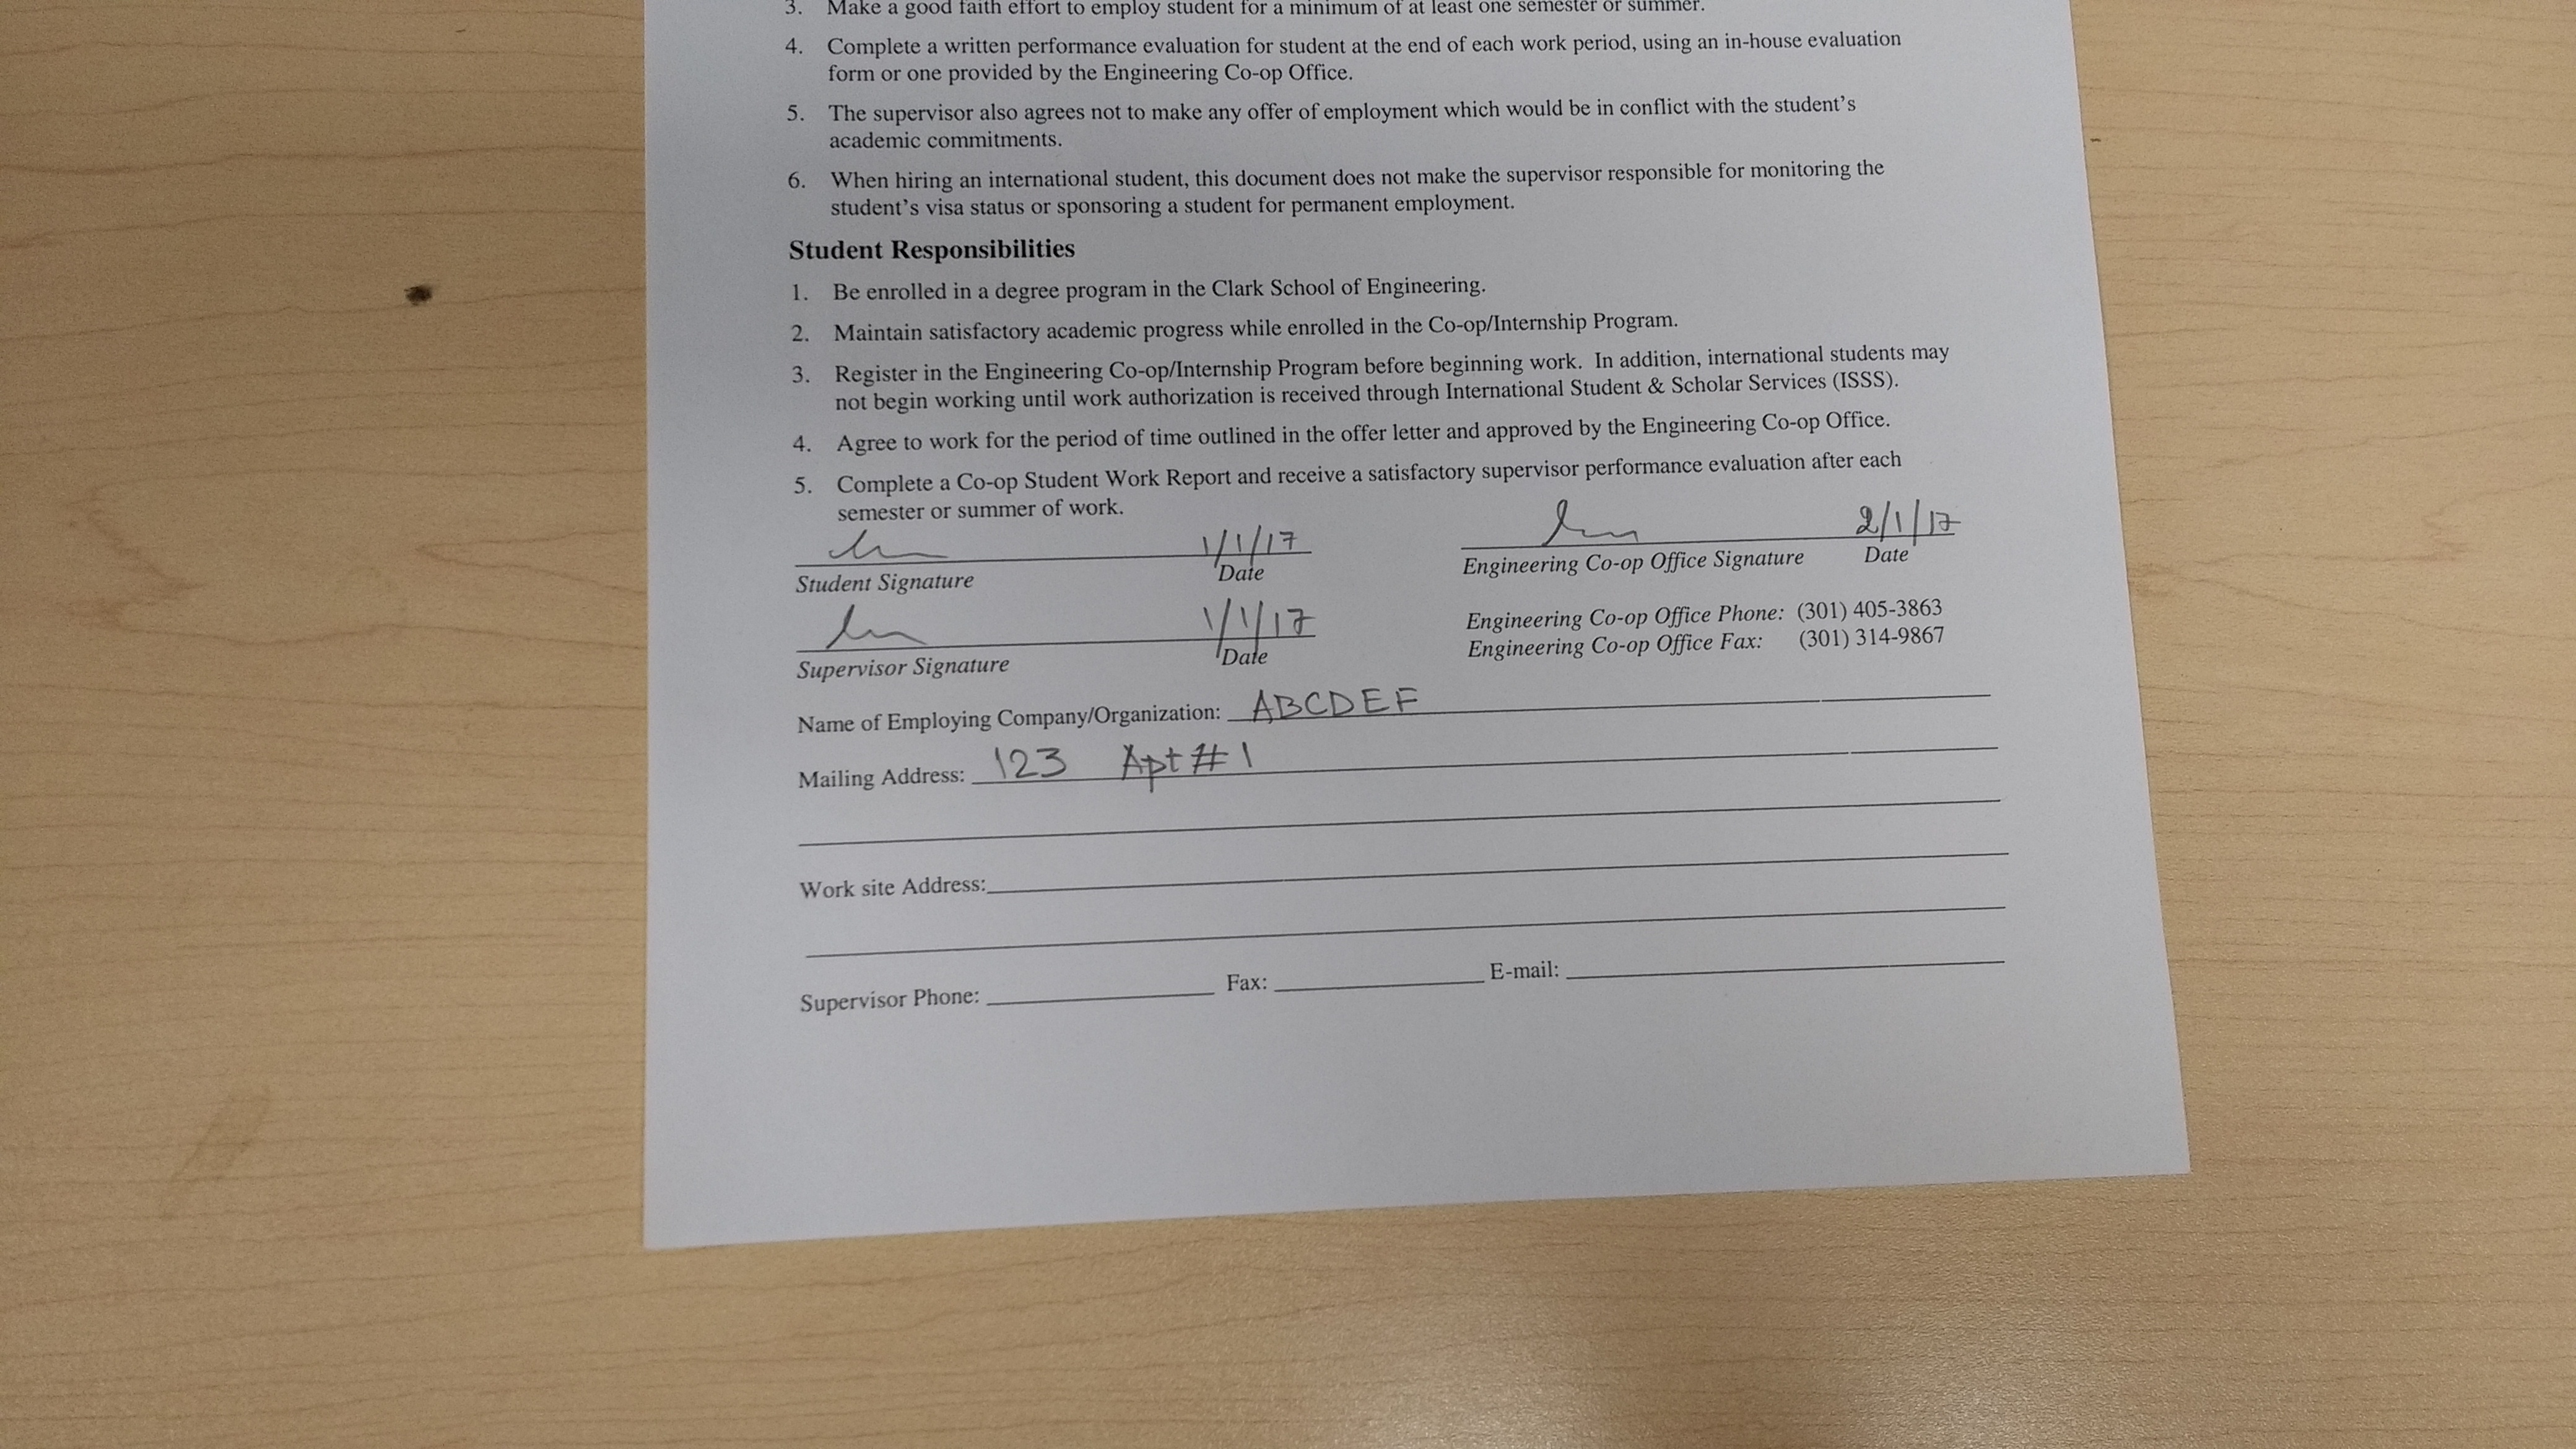 3. Make a good faith effort to employ student for a minimum of at least one semester or summer.
4. Complete a written performance evaluation for student at the end of each work period, using an in-house evaluation
form or one provided by the Engineering Co-op Office.
5. The supervisor also agrees not to make any offer of employment which would be in conflict with the student's
academic commitments.
6. When hiring an international student, this document does not make the supervisor responsible for monitoring the
student's visa status or sponsoring a student for permanent employment.
Student Responsibilities
1. Be enrolled in a degree program in the Clark School of Engineering.
2. Maintain satisfactory academic progress while enrolled in the Co-op/Internship Program.
3. Register in the Engineering Co-op/Internship Program before beginning work. In addition, international students may
not begin working until work authorization is received through International Student & Scholar Services (ISSS).
4. Agree to work for the period of time outlined in the offer letter and approved by the Engineering Co-op Office.
5. Complete a Co-op Student Work Report and receive a satisfactory supervisor performance evaluation after each
semester or summer of work.
1/1/17 2/1/17
Student Signature Date Engineering Co-op Office Signature Date
1/1/17
Supervisor Signature Date
Engineering Co-op Office Phone: (301) 405-3863
Engineering Co-op Office Fax: (301) 314-9867
Name of Employing Company/Organization: ABCDEF
Mailing Address: 123 Apt #1
Work site Address:
Supervisor Phone: Fax: E-mail: